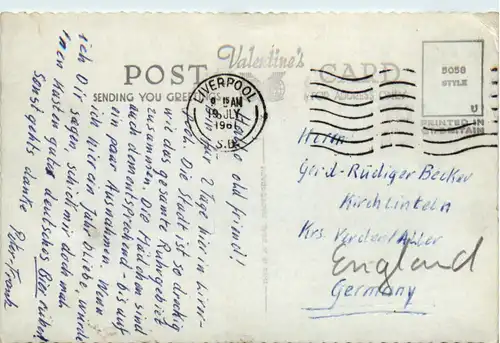 Valentine's
POST CARD
SENDING YOU GREETINGS
FOR ADDRESS ONLY
5056
STYLE
U
PRINTED IN
GT. BRITAIN
LIVERPOOL
9 15 AM
19 JLY
196
S.D.
old friend!
2 Tage hier in Liver-
Die Stadt ist so dreckig
wie das gesamte Ruhrgebiet
zusammen. Die Mädchen sind
auch dementsprechend - bis auf
ein paar Ausnahmen. Wenn
ich hier ein Jahr bliebe, würde
ich Dir sagen, schick mir doch mal
'nen Kasten gutes deutsches Bier rüber!
Sonst gehts danke
Peter-Frank
Herrn
Gerd-Rüdiger Becker
Kirchlinteln
Krs. Verden/Aller
England
Germany